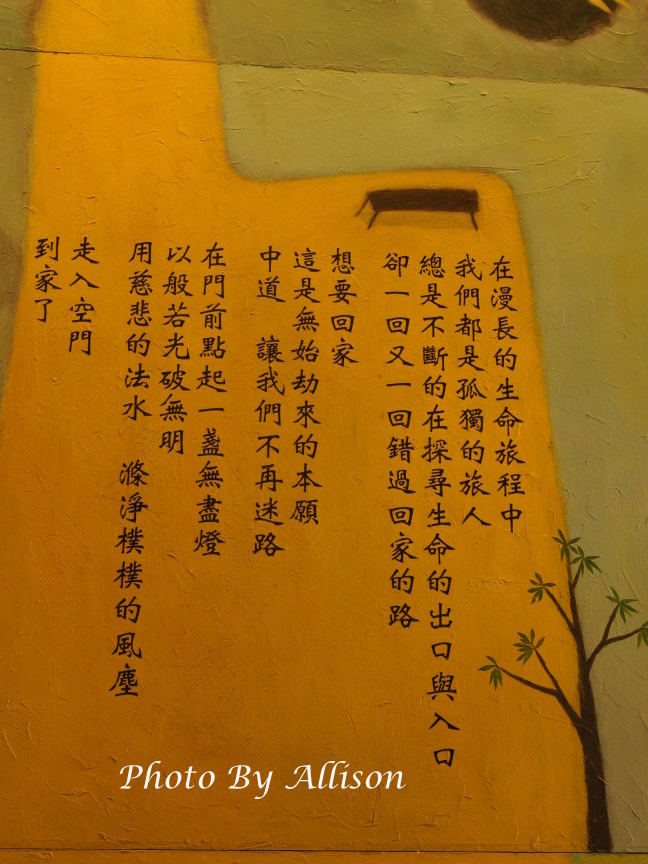 在漫長的生命旅程中
我們都是孤獨的旅人
總是不斷的在探尋生命的出口與入口
卻一回又一回錯過回家的路
想要回家
這是無始劫來的本願
中道　讓我們不再迷路
在門前點起一盞無盡燈
以般若光破無明
用慈悲的法水　滌淨樸樸的風塵
走入空門
到家了
Photo By Allison